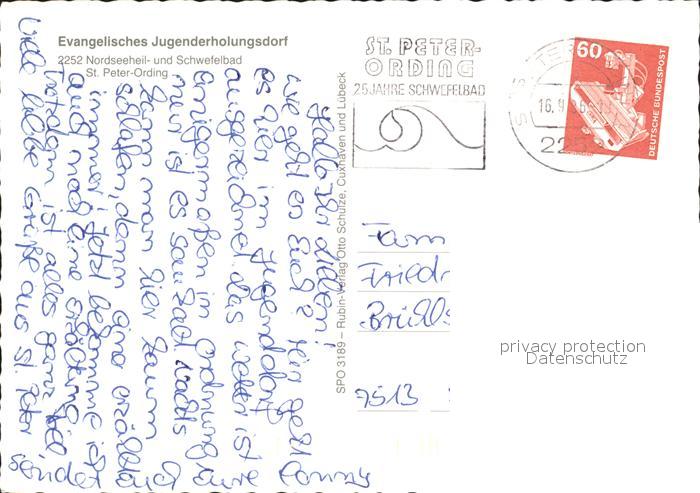 Evangelisches Jugenderholungsdorf
2252 Nordseeheil- und Schwefelbad
St. Peter-Ording
ST. PETER-
ORDING
25 JAHRE SCHWEFELBAD
60
DEUTSCHE BUNDESPOST
16.9.86
225
SPO 3189 – Rubin-Verlag Otto Schulze, Cuxhaven und Lübeck
Hallo Ihr Lieben!
Wie geht es Euch? Mir geht
es hier im Jugenddorf
ausgezeichnet. Das Wetter ist
einigermaßen in Ordnung
nur ist es so nachts
kann man hier kaum
schlafen, denn einer erzählt
immer! Jetzt bekomme ich
auch noch eine Erkältung
Trotzdem ist alles ganz
Viele liebe Grüße aus St. Peter
sendet Euch Eure Conny
Fam
Friedr
Brühls
7513
privacy protection
Datenschutz